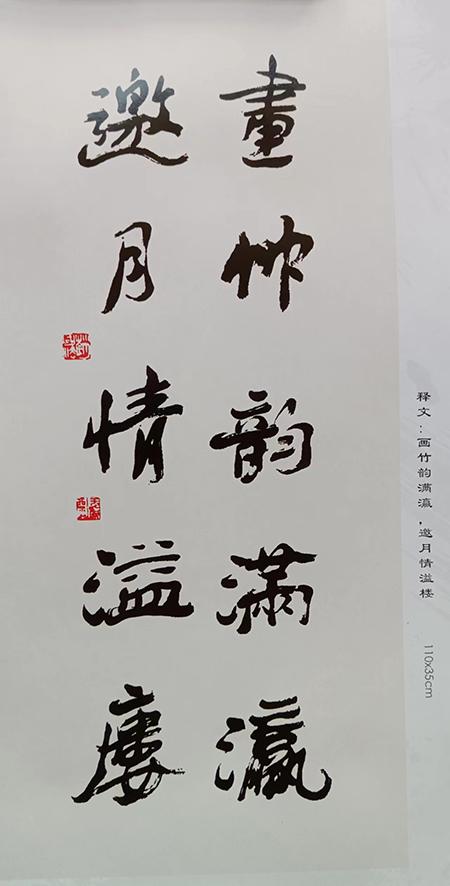 畫竹韵滿瀛
邀月情溢廔
释文：画竹韵满瀛，邀月情溢楼
110x35cm